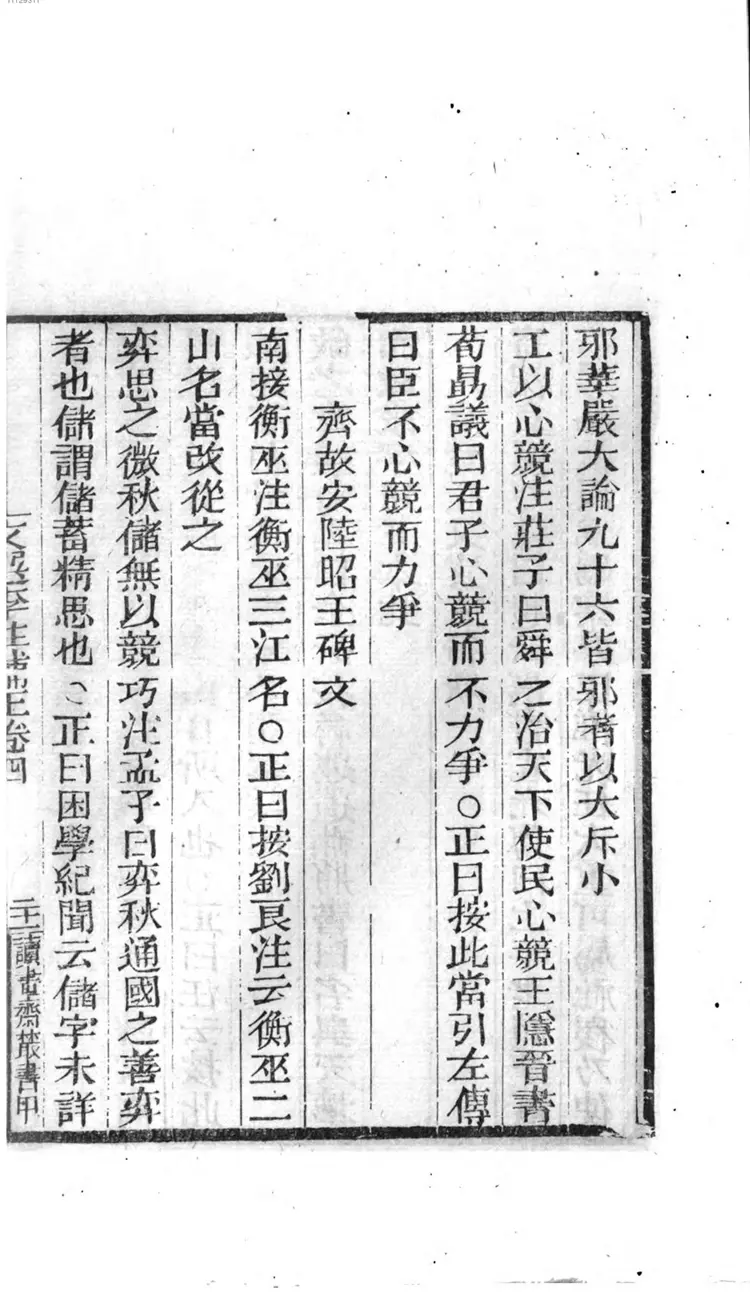 邪華嚴大論九十六皆邪者以大斥小
工以心競注莊子曰舜之治天下使民心競王隱晉書
荀勗議曰君子心競而不力爭○正曰按此當引左傳
曰臣不心競而力爭
齊故安陸昭王碑文
南接衡巫注衡巫三江名○正曰按劉良注云衡巫二
山名當改從之
弈思之微秋儲無以競巧注孟子曰弈秋通國之善弈
者也儲謂儲蓄精思也○正曰困學紀聞云儲字未詳
文選李注補正卷四
二十二
讀畫齋叢書甲
11129311